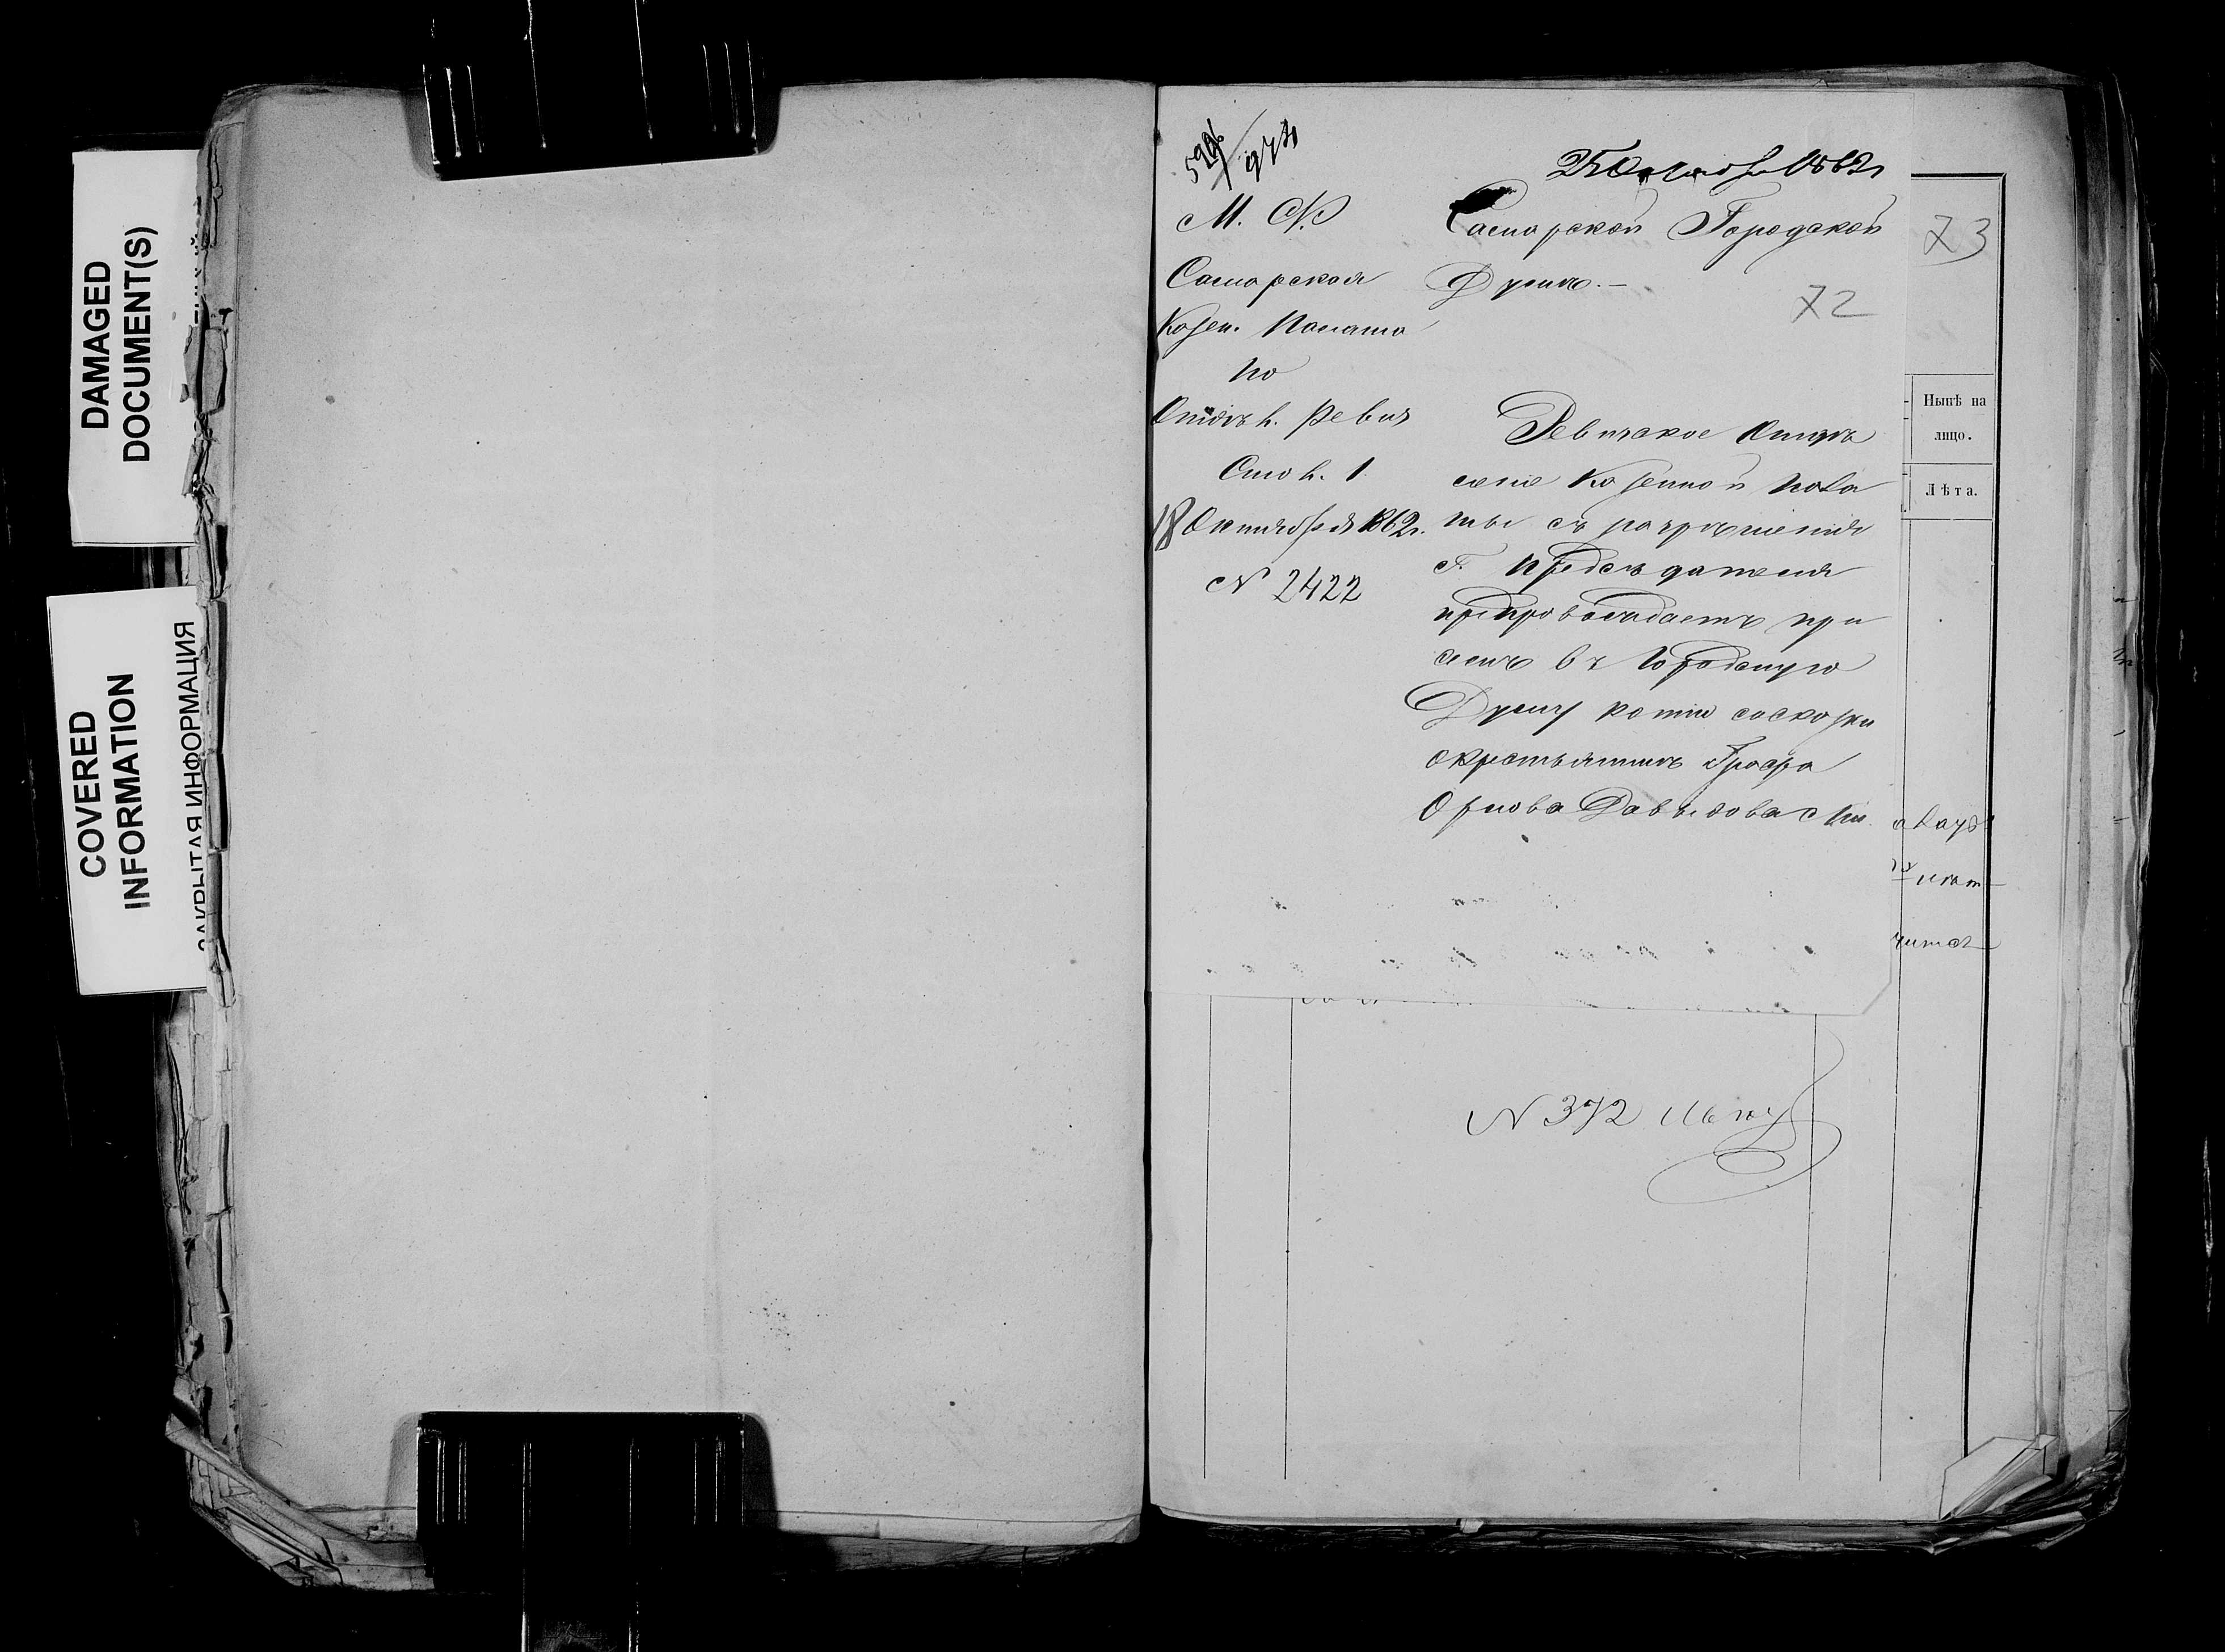 DAMAGED
DOCUMENT(S)
COVERED
INFORMATION
ЗАКРЫТАЯ ИНФОРМАЦИЯ
974
25 Октября 1862 г
М. Ф.
Самарская
Казен. Палата
по
Отдѣл. Ревиз
Стол. 1
18 Октября 1862 г.
N 2422
Самарской Городской
Думѣ. —
73
72
Ревизское Отдѣ
леніе Казенной Пала
ты съ разрѣшенія
Г. Предсѣдателя
препровождаетъ при
семъ въ Городскую
Думу копію со сказки
о крестьянинѣ Графа
Орлова Давыдова
Нынѣ на
лицо.
Лѣта.
N 372